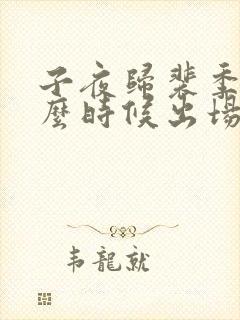 子夜歸裴季
麼時候出場
韦龍就